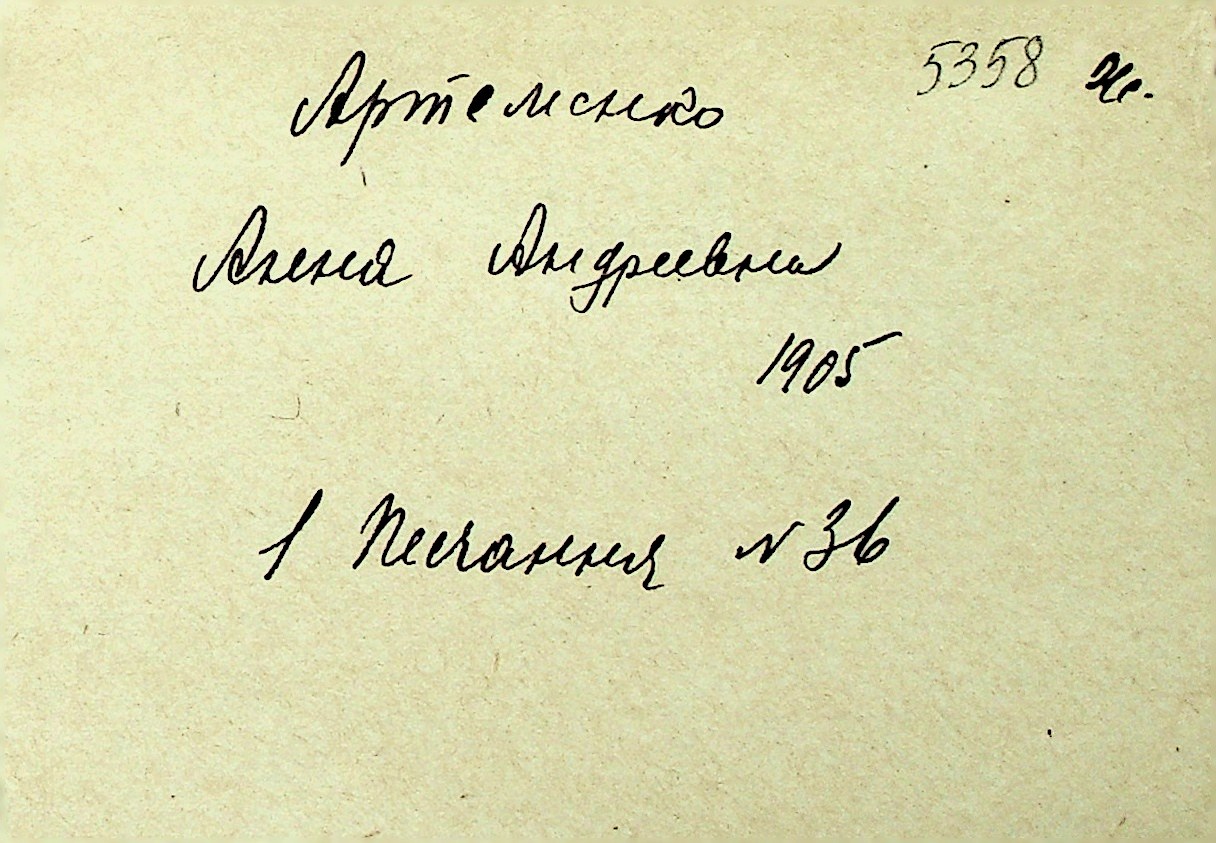 5358 Ж.
Артеменко
Анна Андреевна
1905
1 Песчанная N 36